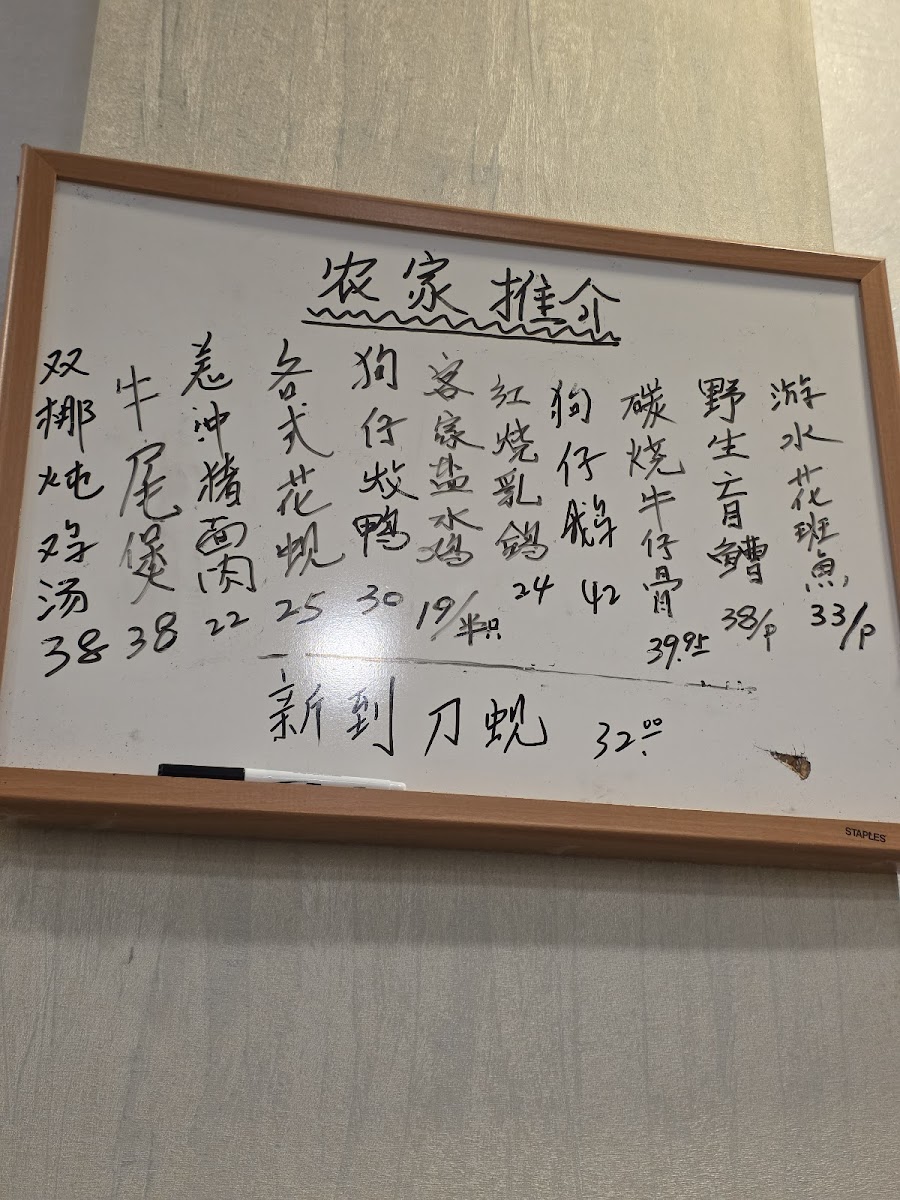 农家推介
游水花班魚 33/P
野生盲鰽 38/P
碳烧牛仔骨 39.95
狗仔鹅 42
红烧乳鸽 24
客家盐水鸡 19/半只
狗仔炆鸭 30
各式花蚬 25
冲猪面肉 22
牛尾煲 38
双梛炖鸡汤 38
新到刀蚬 32.00
STAPLES